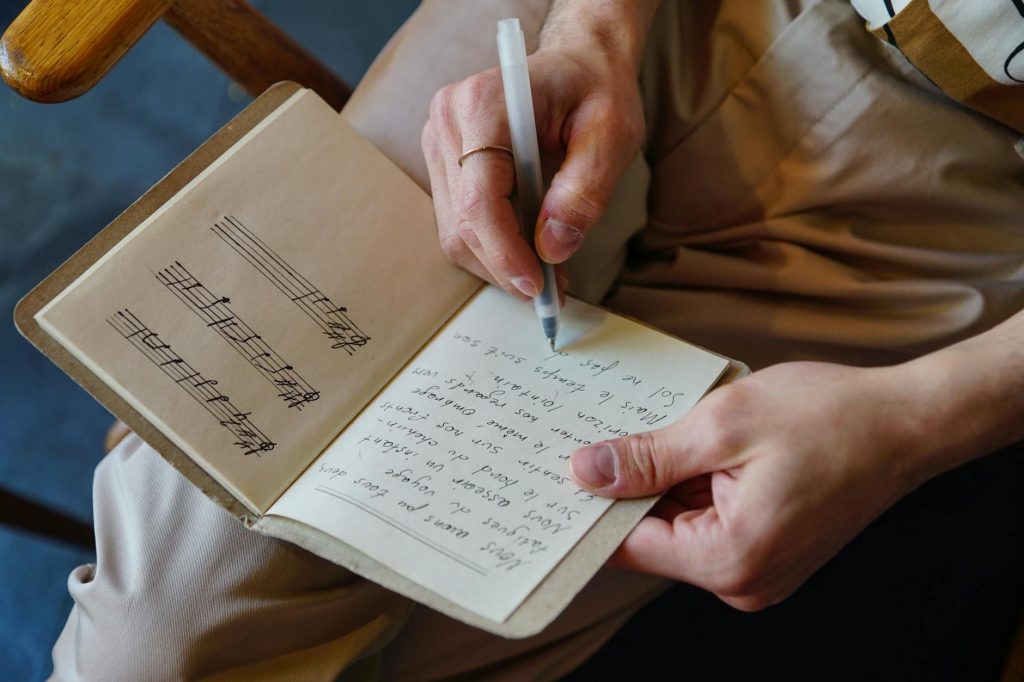 Nous avons pu tous deux
fatigues du voyage
Nous asseoir un instant
sur le bord du chemin-
Et sentir sur nos fronts
le même ombrage
porter nos regards vers
horizon lointain.
Mais le temps suit son
Sol ne pas d